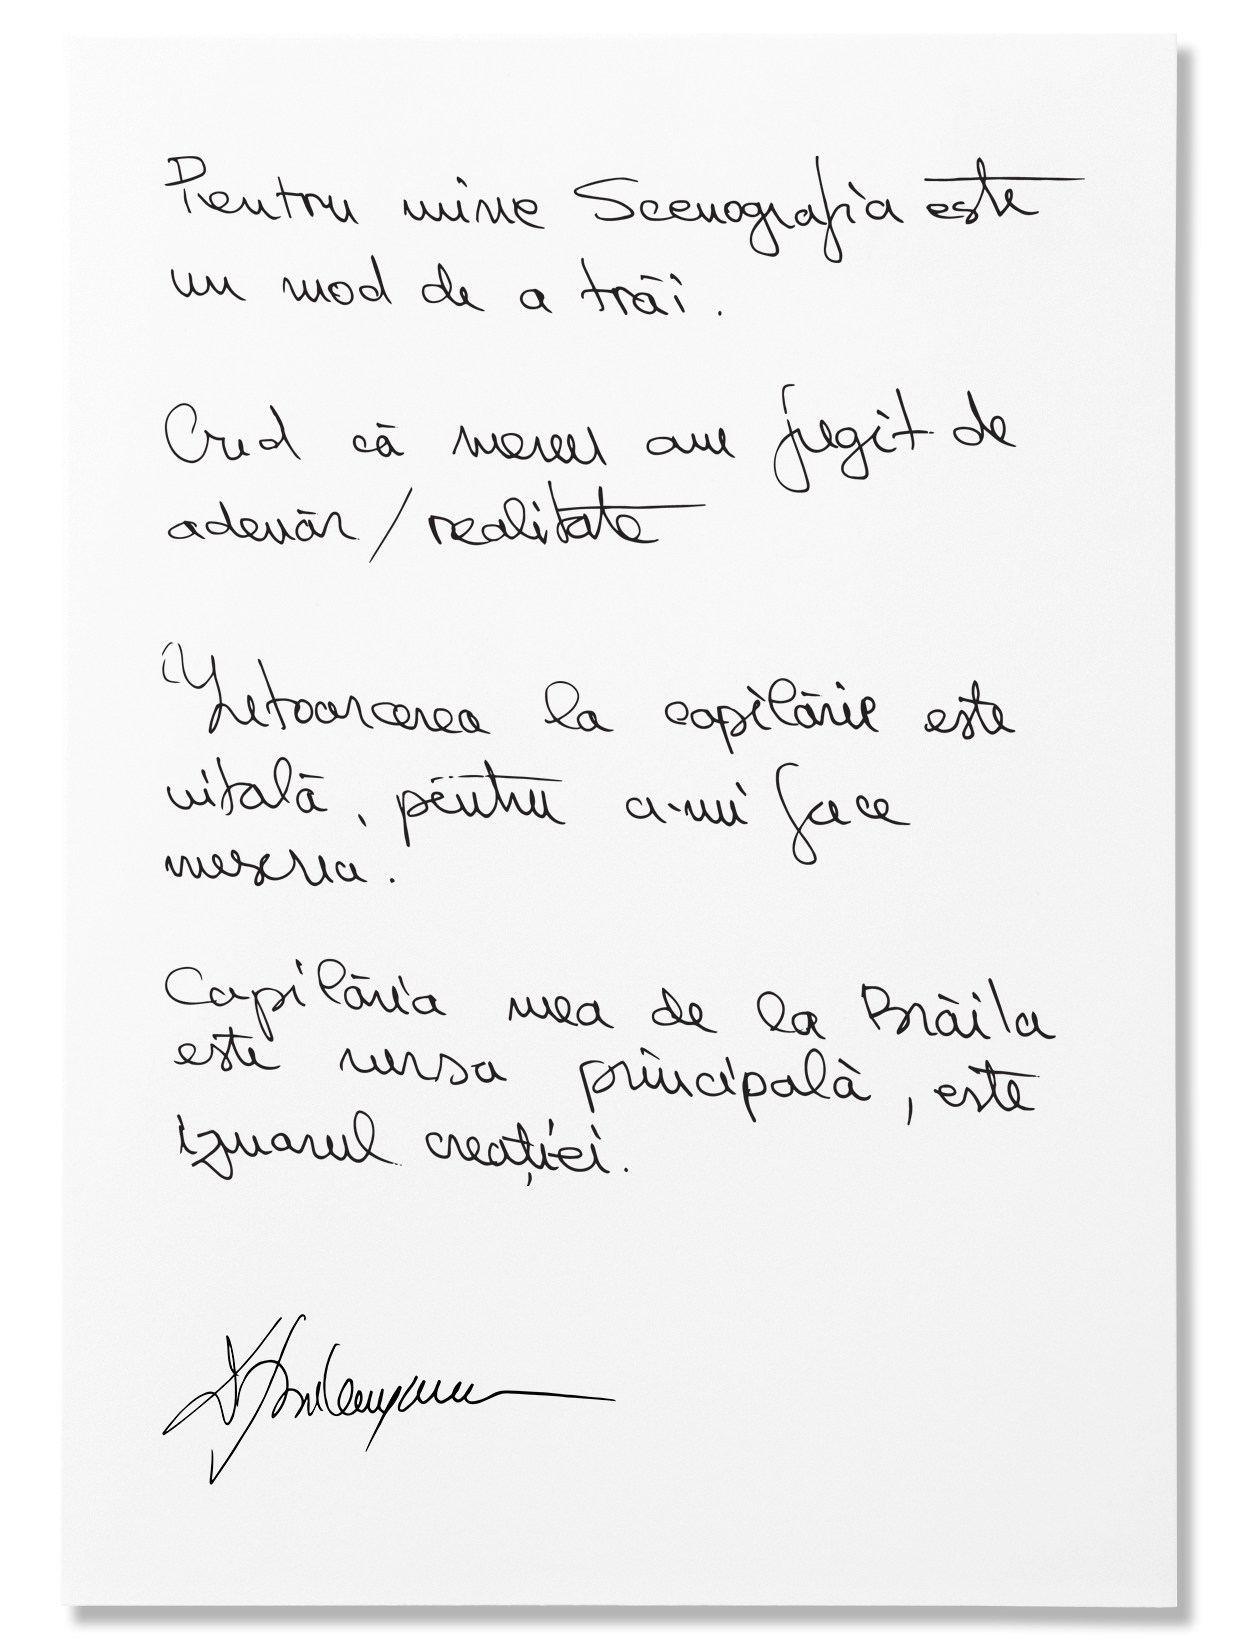 Pentru mine Scenografia este
un mod de a trăi.
Cred că mereu am fugit de
adevăr / realitate
Întoarcerea la copilărie este
vitală, pentru a-mi face
meseria.
Copilăria mea de la Brăila
este sursa principală, este
izvorul creației.